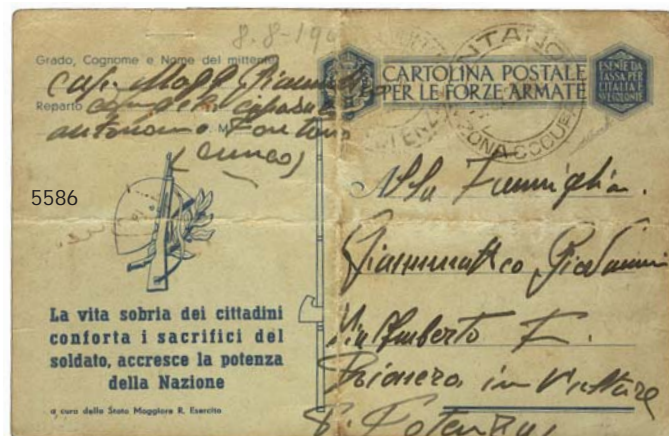 8-8-19
Grado, Cognome e Nome del mittente
Cap. Magg. Giammatteo
Reparto
autonomo Fontano
(Cuneo)
5586
La vita sobria dei cittadini
conforta i sacrifici del
soldato, accresce la potenza
della Nazione
a cura dello Stato Maggiore R. Esercito
CARTOLINA POSTALE
PER LE FORZE ARMATE
ESENTE DA
TASSA PER
L'ITALIA E
ZONA OCCUP
Alla Famiglia
Giammatteo Giovanni
Via Umberto I.
Rionero in Vulture
P. Potenza